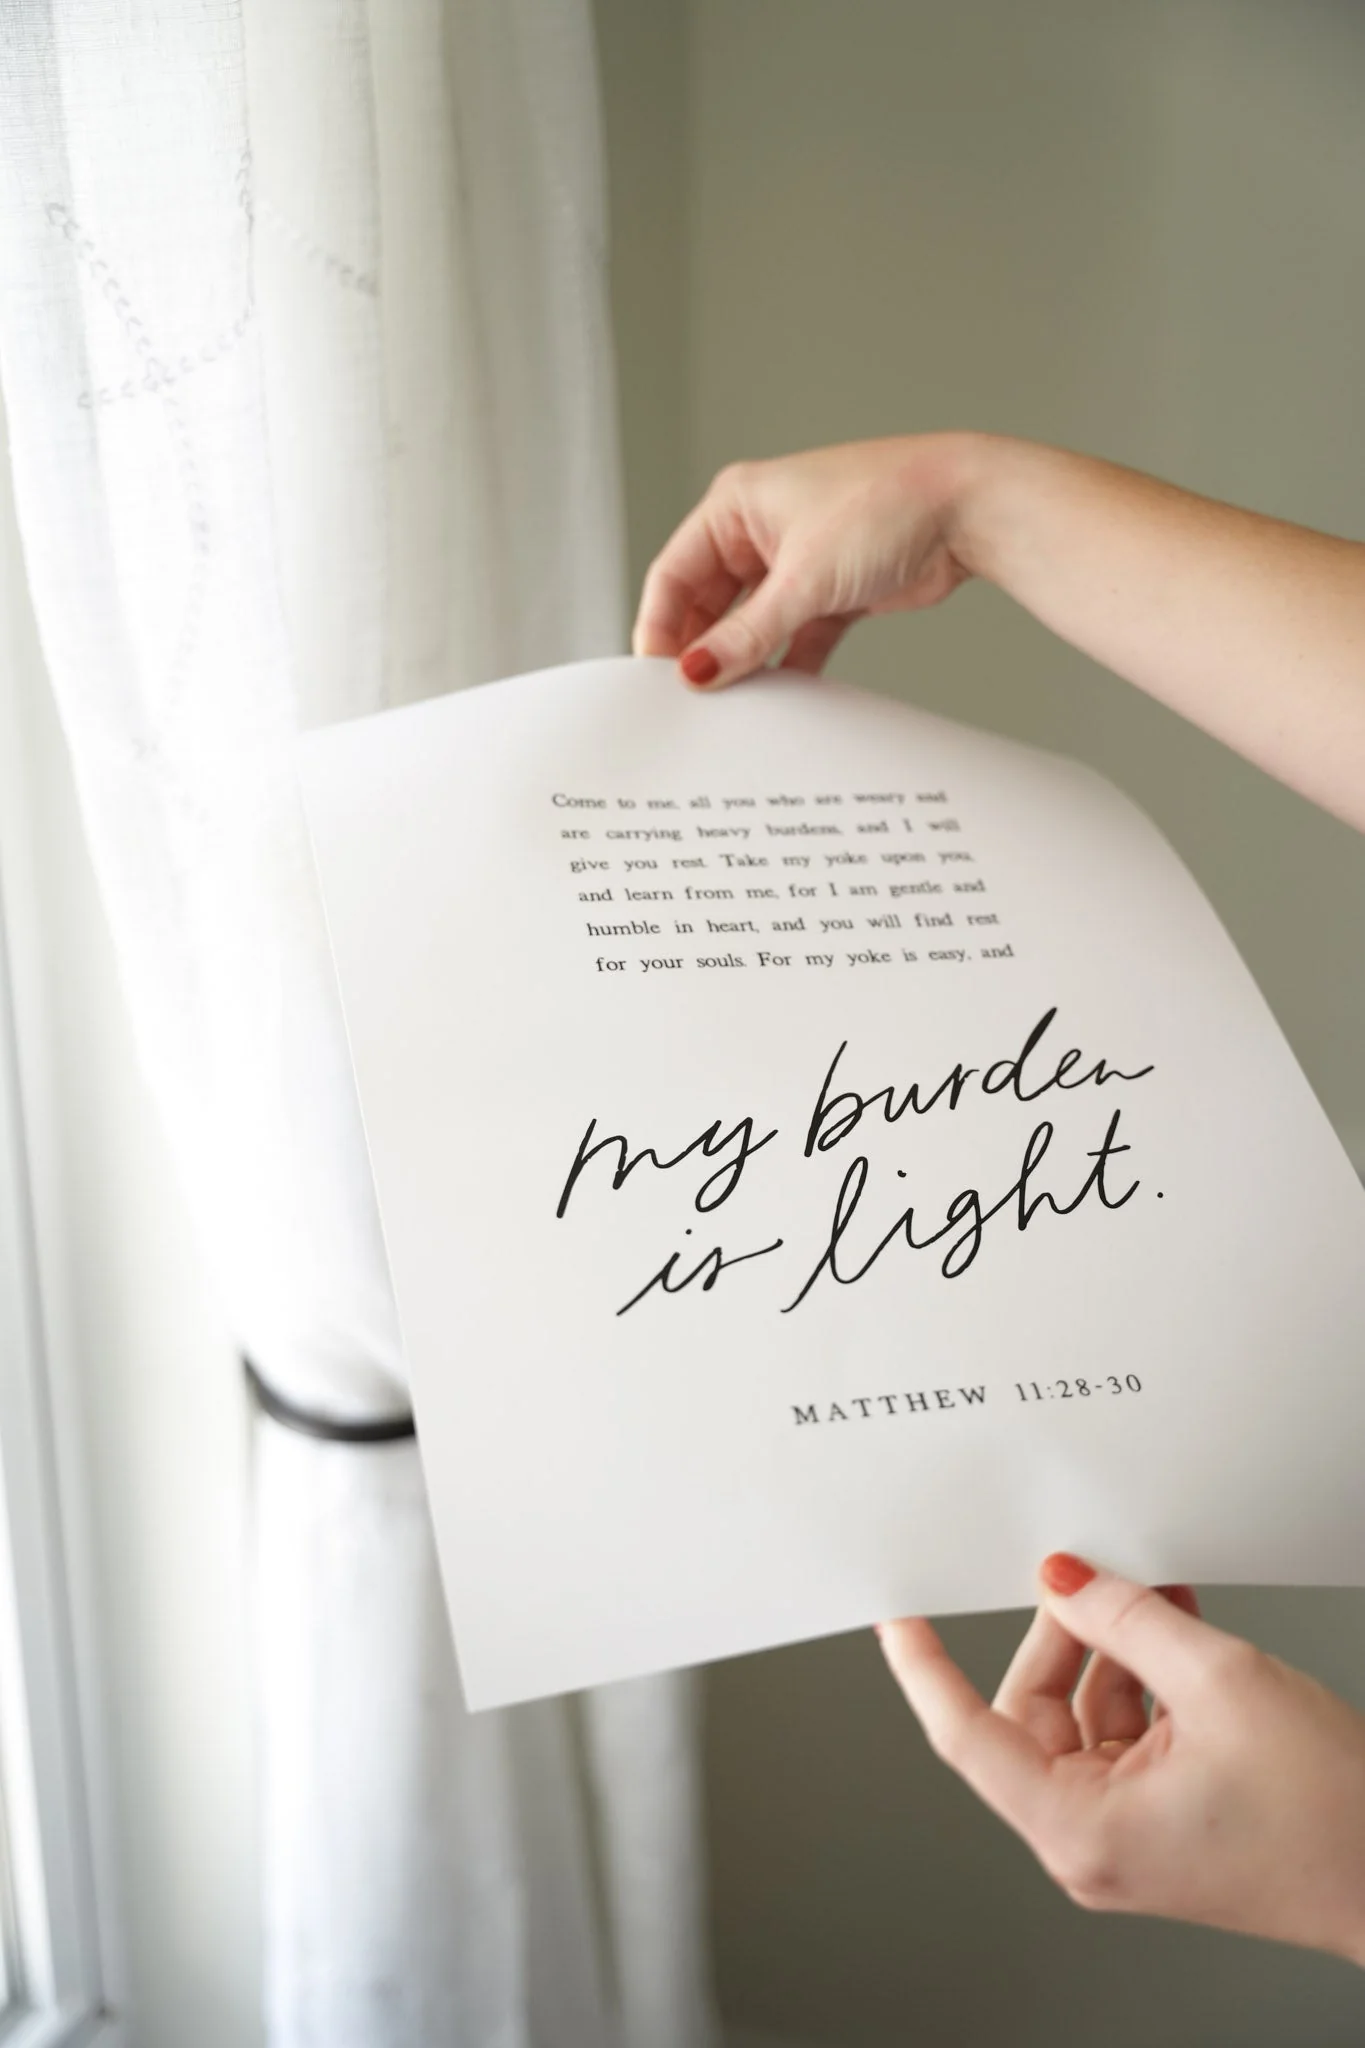 Come to me, all you who are weary and
are carrying heavy burdens, and I will
give you rest. Take my yoke upon you,
and learn from me, for I am gentle and
humble in heart, and you will find rest
for your souls. For my yoke is easy, and
my burden
is light.
MATTHEW 11:28-30